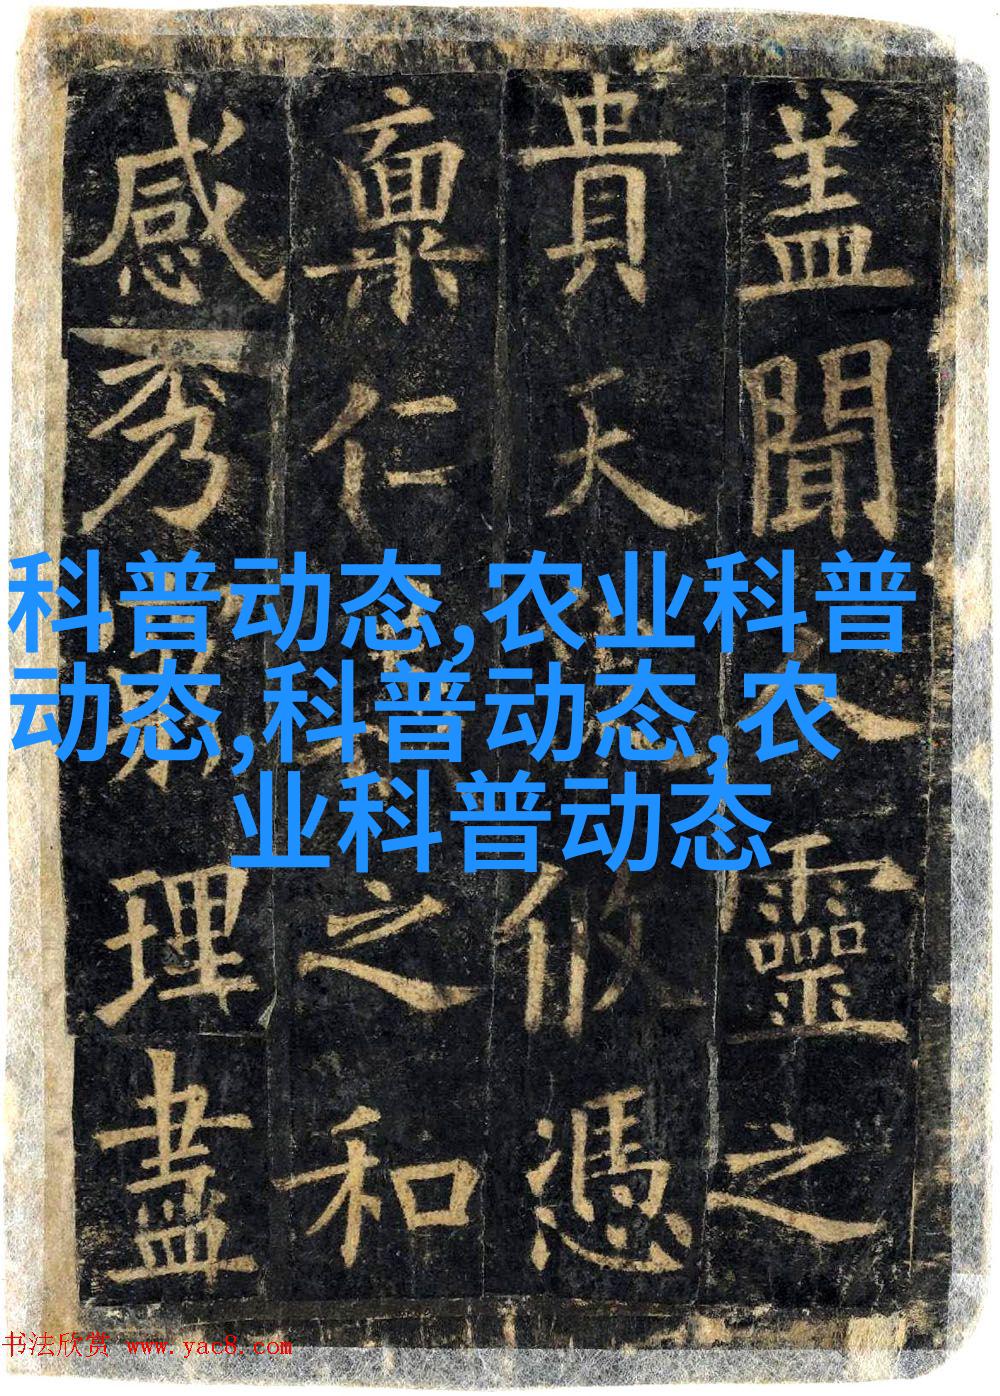 科普动态,农业科普
动态,科普动态,农
业科普动态
盖聞靈之
貴天攸憑
稟仁之和
感秀理盡
书法欣赏 www.yac8.com